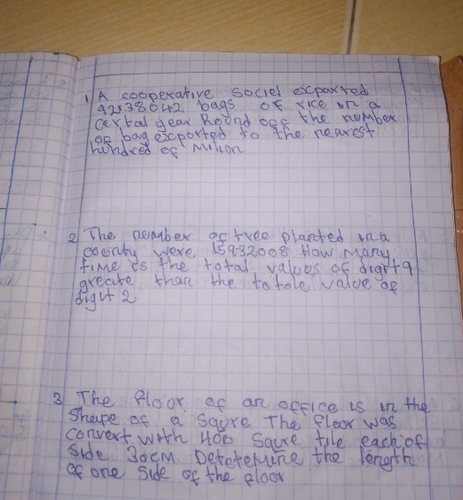 1 A cooperative Sociel exported
92138042 bags of rice in a
certal year Round off the number
of bag exported to the nearest
hundred of Milion
2 The number of tree planted in a
coenty were 15932008 How many
time is the total values of digit 9
greate than the totole value of
digit 2
3 The floor of an office is in the
Shape of a Squre The floor was
convert with 400 Sqare tile each of
Side 30cm Detetemine the length
of one side of the floor